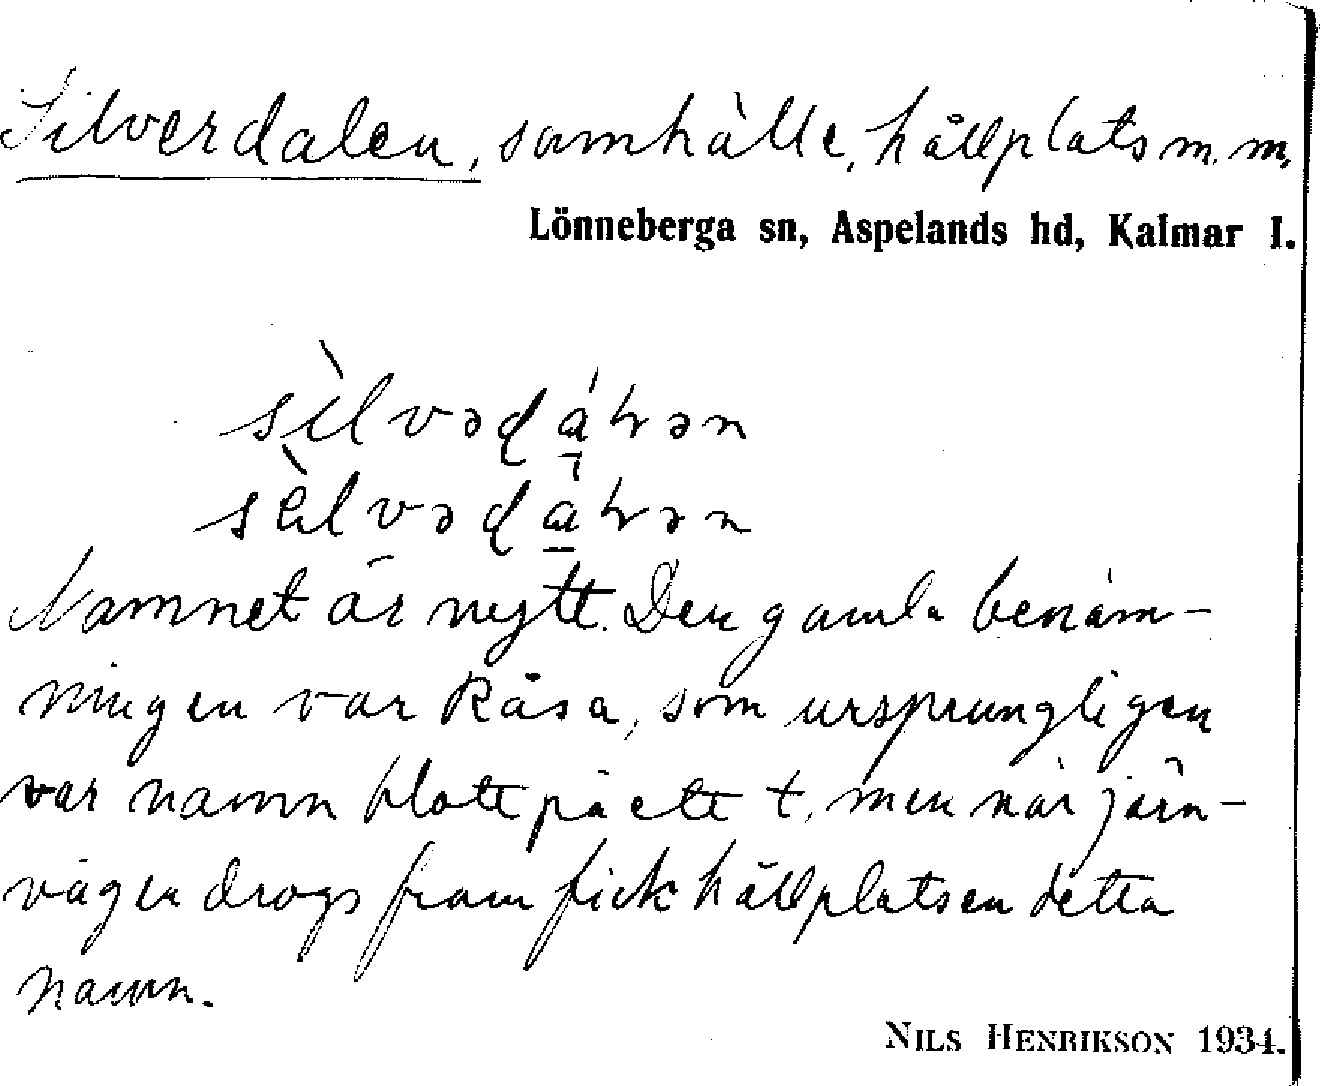 Silverdalen, samhälle, hållplats m. m.
Lönneberga sn, Aspelands hd, Kalmar l.
Namnet är nytt. Den gamla benäm-
ningen var Råsa, som ursprungligen
var namn blott på ett t, men när järn-
vägen drogs fram fick hållplatsen detta
namn.
NILS HENRIKSON 1934.